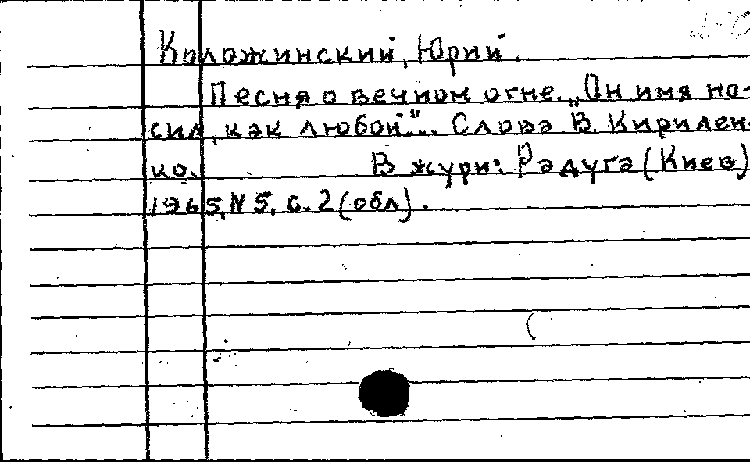 Коложинский, Юрий.
Песня о вечном огне. „Он имя но-
сил, как любой"... Слова В. Кирилен-
ко. В журн: Радуга (Киев)
1965, N 5, с. 2 (обл).